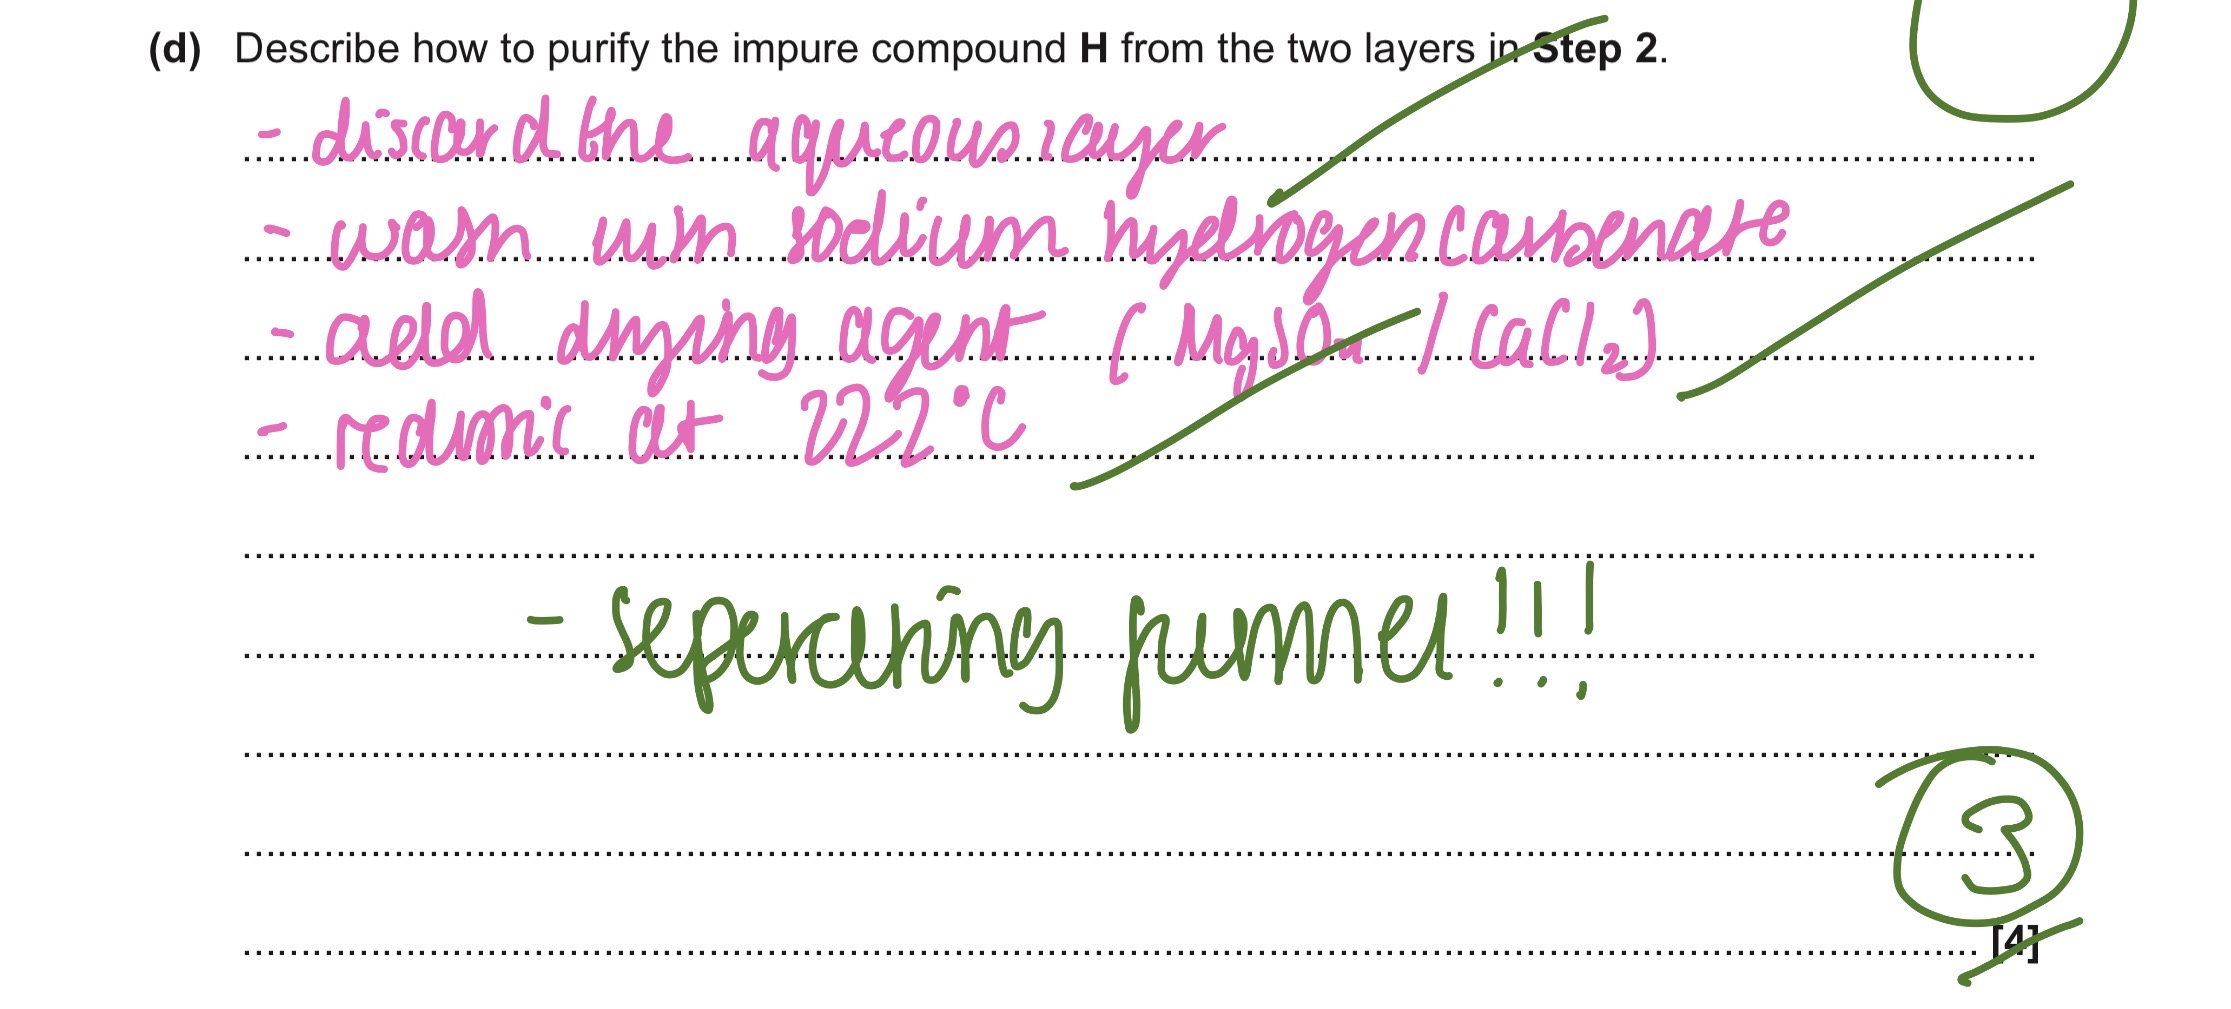 (d) Describe how to purify the impure compound H from the two layers in Step 2.
- discard the aqueous layer
- wash with sodium hydrogencarbonate
- add drying agent (MgSO4 / CaCl2)
- redistil at 222°C
- seperating funnel!!!
3
[4]